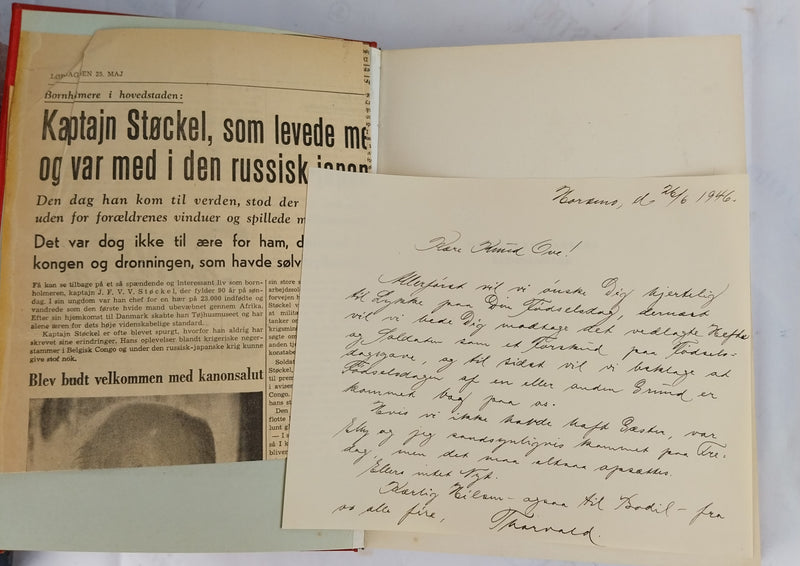 LØRDAGEN 25. MAJ
Bornholmere i hovedstaden:
Kaptajn Støckel, som levede me
og var med i den russisk japan
Den dag han kom til verden, stod der
uden for forældrenes vinduer og spillede m
Det var dog ikke til ære for ham, d
kongen og dronningen, som havde sølv
Få kan se tilbage på et så spændende og interessant liv som born-
holmeren, kaptajn J. F. V. V. Støckel, der fylder 90 år på søn-
dag. I sin ungdom var han chef for en hær på 23.000 indfødte og
vandrede som den første hvide mand ubevæbnet gennem Afrika.
Efter sin hjemkomst til Danmark skabte han Tøjhusmuseet og har
alene æren for dets høje videnskabelige standard.
Kaptajn Støckel er ofte blevet spurgt, hvorfor han aldrig har
skrevet sine erindringer. Hans oplevelser blandt krigeriske neger-
stammer i Belgisk Congo og under den russisk-japanske krig kunne
give stof nok.
Blev budt velkommen med kanonsalut
sin store s
arbejdsolo
forvejen h
Støckel v
at milit
tanker o
krigsmin
søgt om
anden tj
konstabe
Soldat
Støckel,
til prem
i avisen
Congo.
hans st
Den
flotte
lunt gl
— I a
så I k
bliver
Horsens, d. 26/6 1946.
Kære Knud Ove!
Allerførst vil vi ønske Dig hjertelig
til Lykke paa Din Fødselsdag, dernæst
vil vi bede Dig modtage det vedlagte Hefte
og Soldater som et Forskud paa Fødsels-
dagsgave, og til sidst vil vi beklage at
Fødselsdagen af en eller anden Grund er
kommet bag paa os.
Hvis vi ikke havde haft Gæster, var
Elly og jeg sandsynligvis kommet paa Fre-
dag, men det maa altsaa opsættes.
Ellers intet Nyt.
Kærlig Hilsen - ogsaa til Bodil - fra
os alle fire, Thorvald.